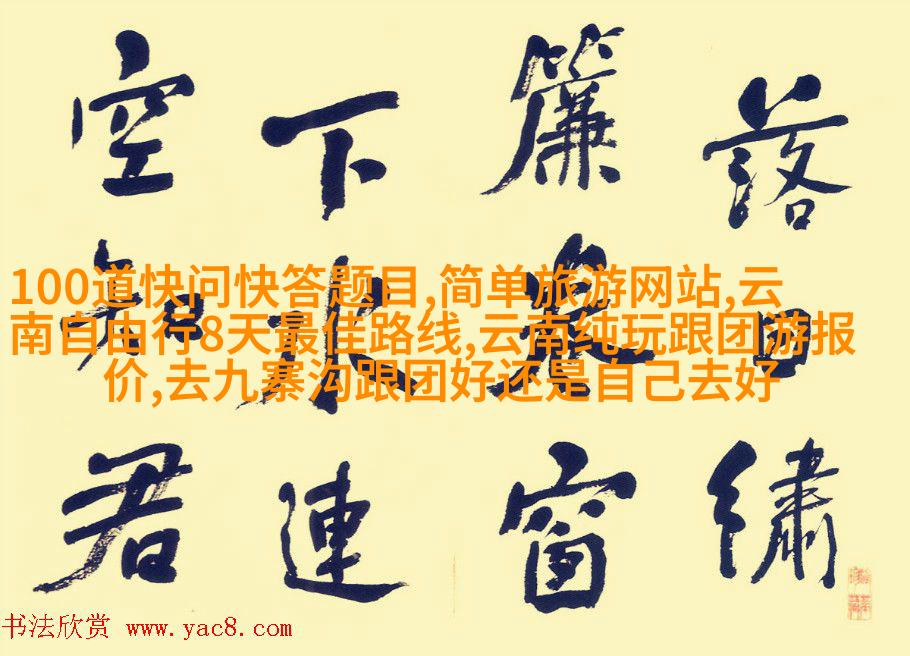 落日繡
簾卷窗
下水連
空知君
100道快问快答题目,简单旅游网站,云
南自由行8天最佳路线,云南纯玩跟团游报
价,去九寨沟跟团好还是自己去好
书法欣赏 www.yac8.com